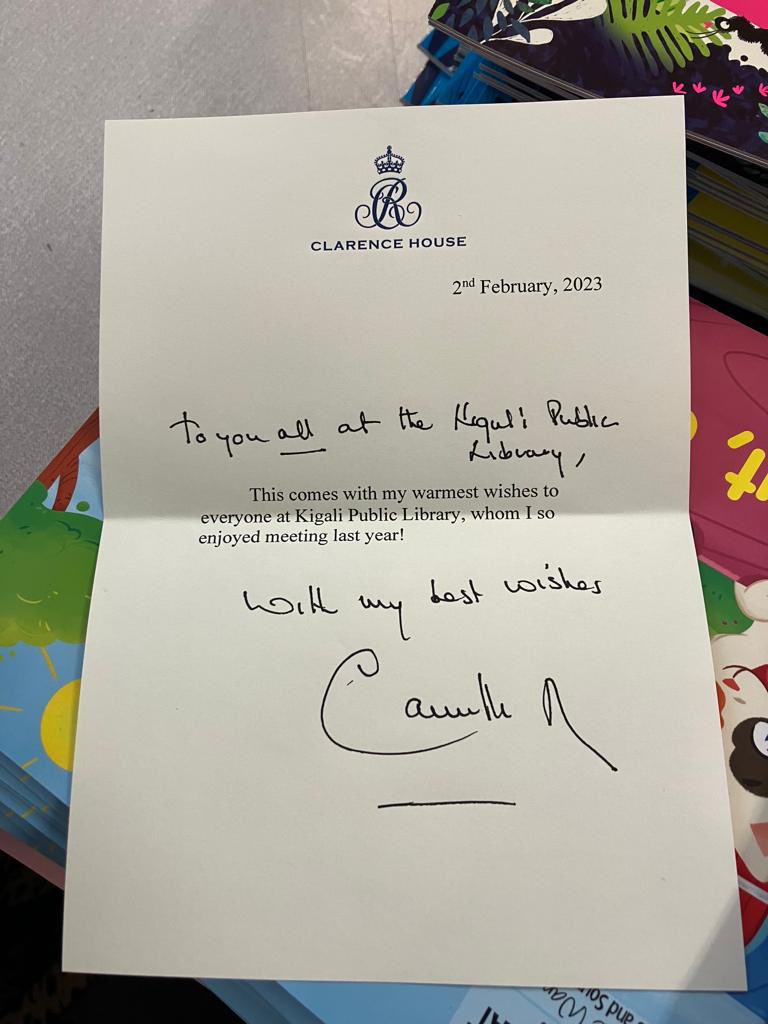 CLARENCE HOUSE
2nd February, 2023
To you all at the Kigali Public
Library,
This comes with my warmest wishes to
everyone at Kigali Public Library, whom I so
enjoyed meeting last year!
With my best wishes
Camilla R